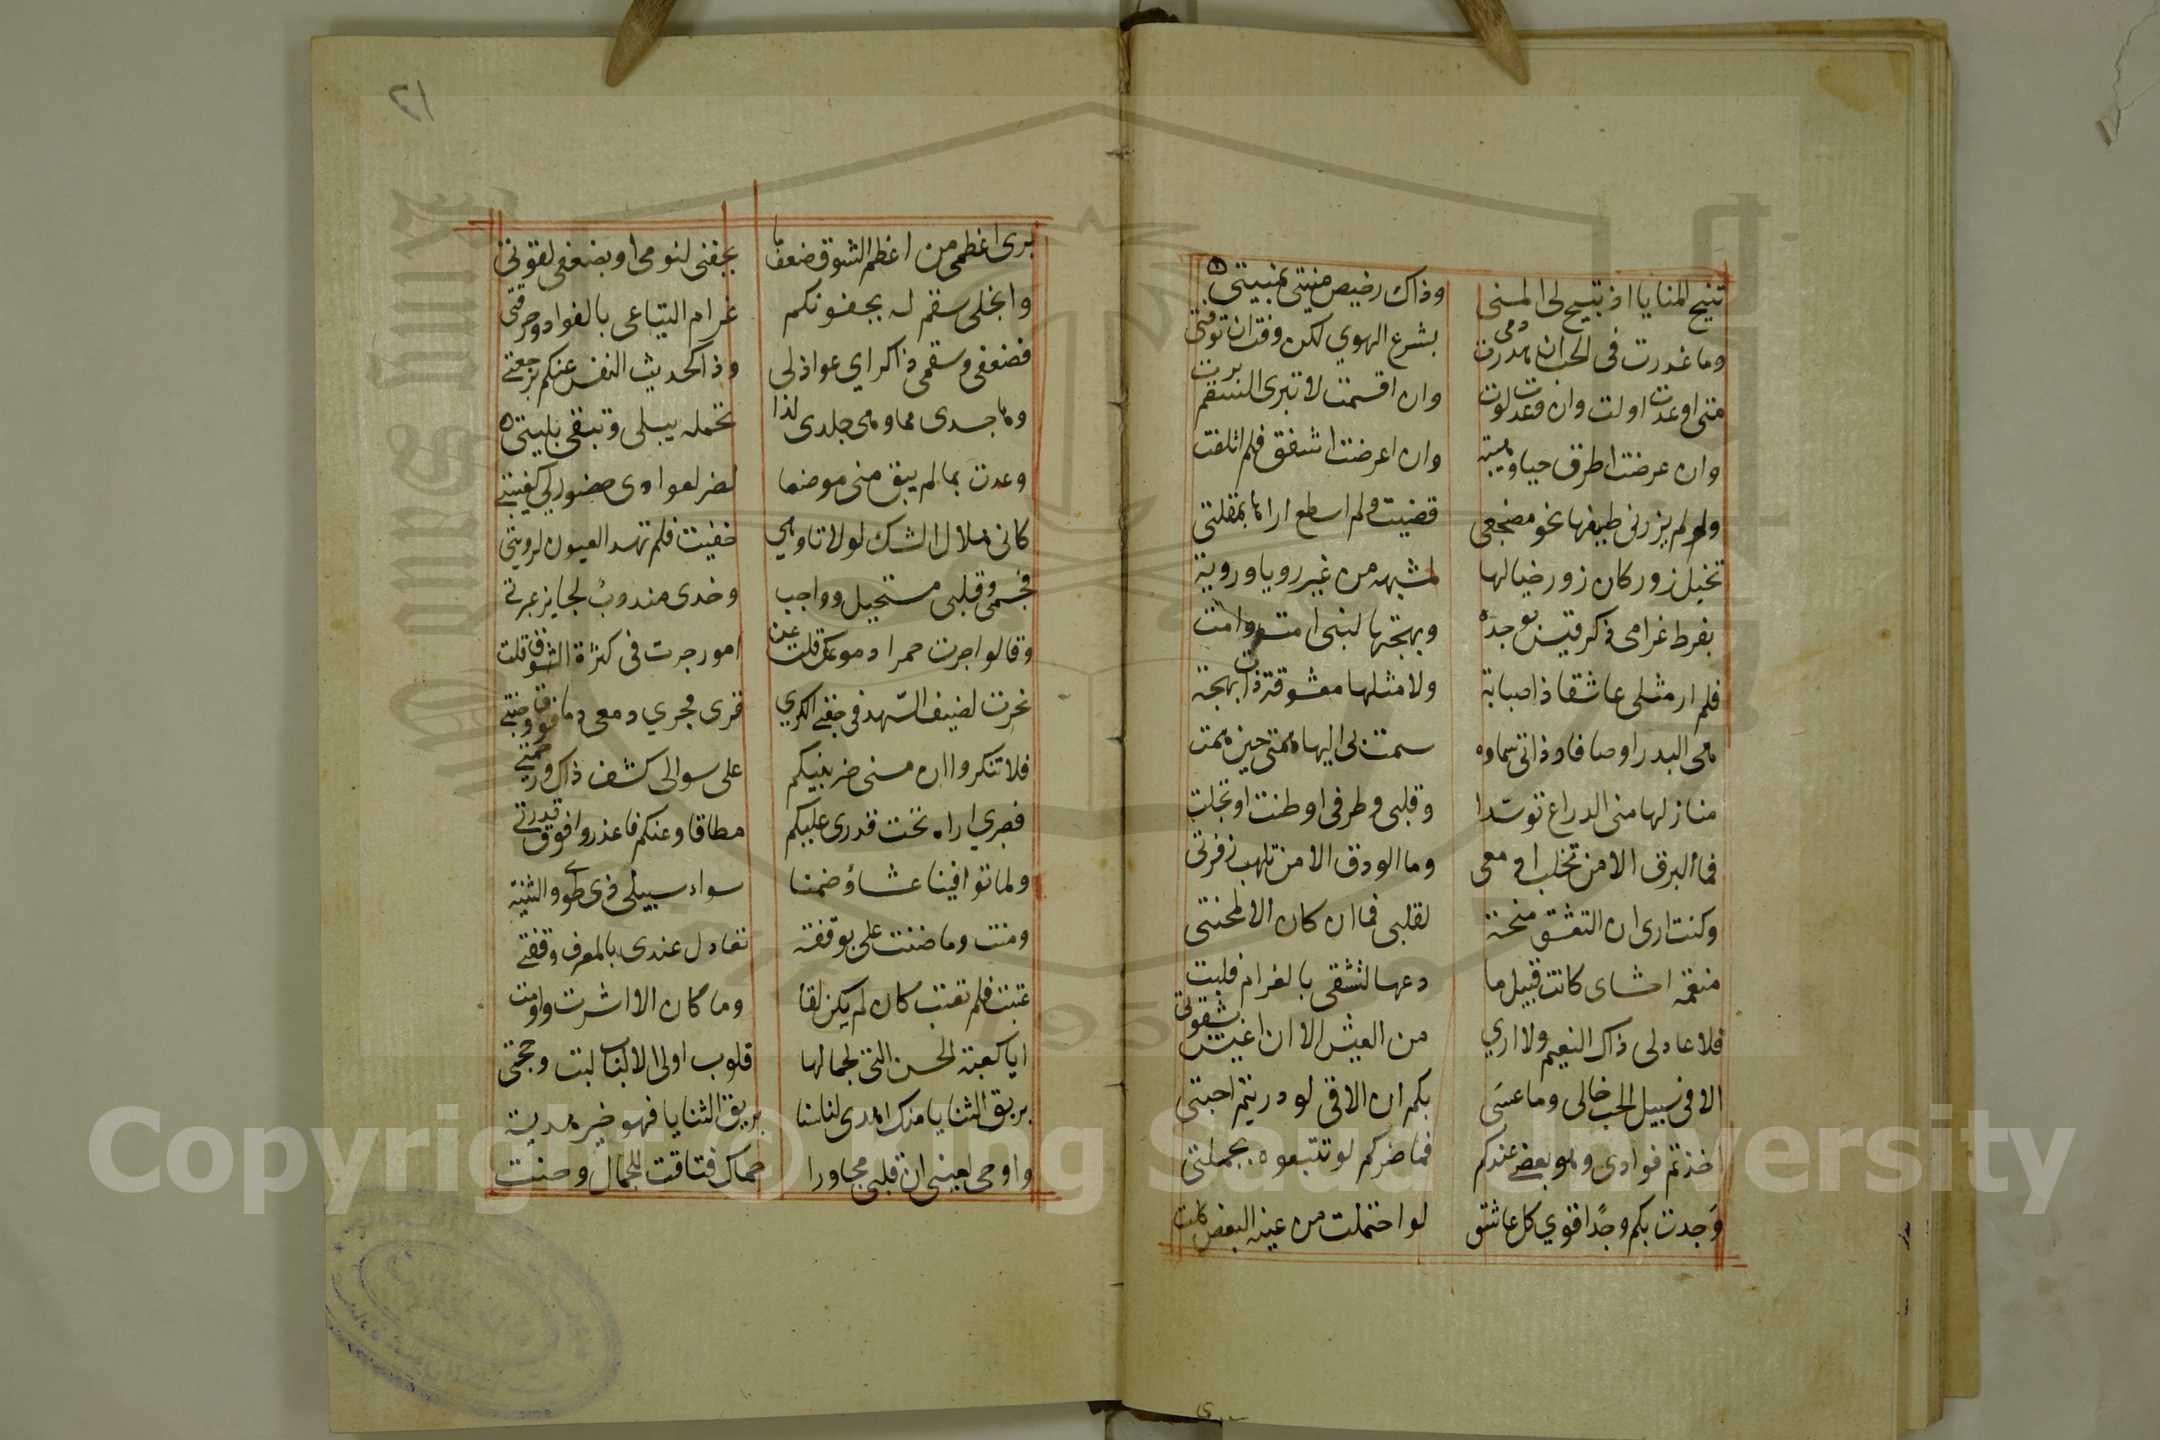 ٢١
تتيح المنايا اذ تبيح لي المنى وذاك رخيص منيتي بمنيتي
وما غدرت في الحب ان هدرت دمي بشرع الهوي لكن وفت ان توفتي
متى اوعدت اولت وان وعدت لوت وان اقسمت لا تبرى السقم برت
وان عرضت اطرق حيا وهيبة وان اعرضت اشفق فلم اتلفت
ولو لم يزرني طيفها نحو مضجعي قضيت ولم اسطع اراها بمقلتي
تخيل زور كان زور خيالها لمشبهه من غير رويا وروية
بفرط غرامي ذكر قيس بوجده وبهجتها لبنى امت وامت
فلم ار مثلي عاشقا ذا صبابة ولا مثلها معشوقة ذات بهجة
هي البدر اوصافا وذاتي سماوه سمت بي اليها همتي حين همت
منازلها مني الدراع توسدا وقلبي وطرفي اوطنت او تجلت
فما البرق الا من تخلب ادمعي وما الودق الا من تلهب زفرتي
وكنت ارى ان التعشق منحة لقلبي فما ان كان الا لمحنتي
منعمة احشاي كانت قبيل ما دعها لتشقى بالغرام فلبت
فلا عاد لي ذاك النعيم ولا اري من العيش الا ان اعيش بشقوتي
الا في سبيل الحب حالي وما عسى بكم ان الاقي لو دريتم احبتي
اخذتم فوادي وهو بعضي عندكم فما ضركم لو تتبعوه بجملتي
وجدت بكم وجدا قوي كل عاشق لو احتملت من عبئه البعض كلت
برى اعظمي من اعظم الشوق ضعف ما بجفني لنومي او بضعفي لقوتي
وانحلي سقم له بجفونكم غرام التياعي بالفواد وحرقتي
فضعفي وسقمي ذا كراي عواذلي وذا كحديث النفس عنكم برجعتي
وها جسدي مما وهي جلدي لذا تحمله يبلى وتبقى بليتي
وعدت بما لم يبق مني موضعا لضر لعوادي حضوري كغيبتي
كاني هلال الشك لولا تاوهي خفيت فلم تهد العيون لرويتي
فجسمي وقلبي مستحيل وواجب وخدي مندوب لجايز عبرتي
وقالوا جرت حمرا دموعك قلت عن امور جرت في كثرة الشوق قلت
نحرت لضيف السهد في جفني الكري قرى فجري دمعي دما فوق وجنتي
فلا تنكروا ان مسني ضر بينكم على سوالي كشف ذاك ورحمتي
فصبري اراه تحت قدري عليكم مطاقا وعنكم فاعذروا فوق قدرتي
ولما توافينا عشاء وضمنا سواء سبيلي ذي طوى والثنية
ومنت وما ضنت علي بوقفة تعادل عندي بالمعرف وقفتي
عتبت فلم تعتب كان لم يكن لقا وما كان الا اشرت واومت
ايا كعبة الحسن التي لجمالها قلوب اولي الالباب لبت وحجتي
بريق الثنايا منك اهدى لنا سنا بريق الثنايا فهو خير هدية
واوحى لعيني ان قلبي مجاورا حماك فتاقت للجمال وحنت